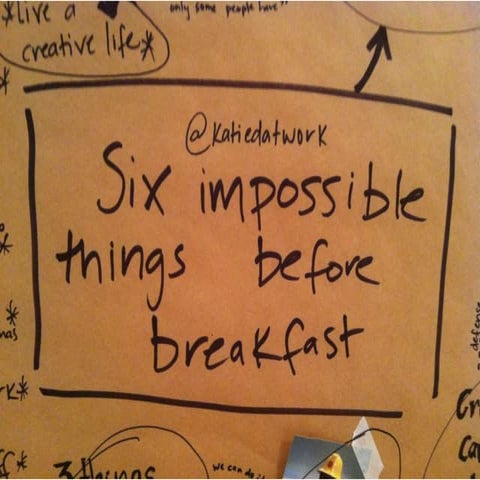 *live a
creative life*
only some people have"
@katiedatwork
Six impossible
things before
breakfast
defense
3 things
we can do it